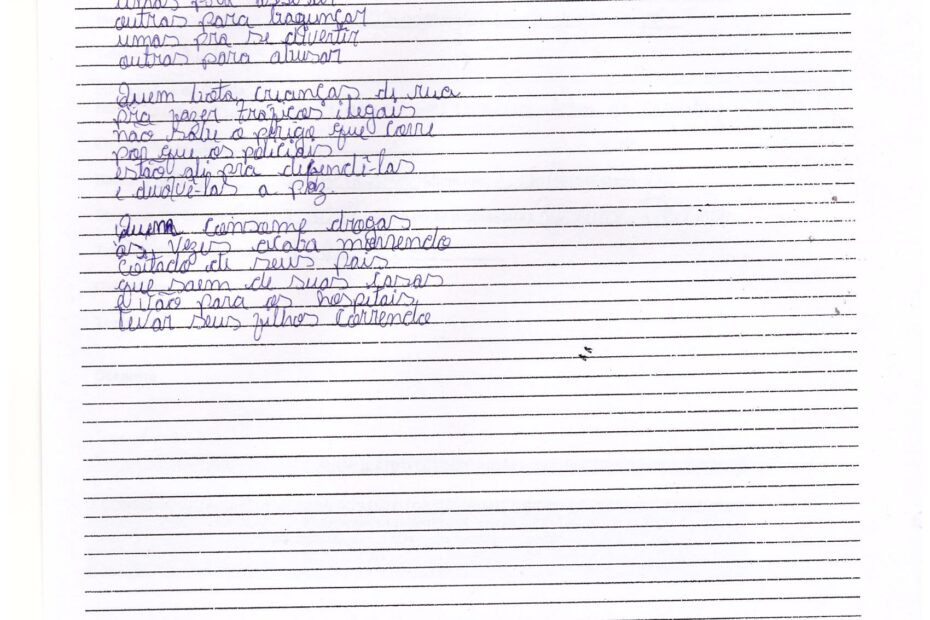 outras para bagunçar
umas pra se divertir
outras para abusar
Quem bota crianças de rua
pra fazer tráficos ilegais
não sabe o perigo que corre
por que os policiais
estão ali pra defendê-las
e duolvê-las a paz.
Quem consome drogas
às vezes acaba morrendo
coitado de seus pais
que saem de suas casas
e vão para os hospitais
levar seus filhos correndo